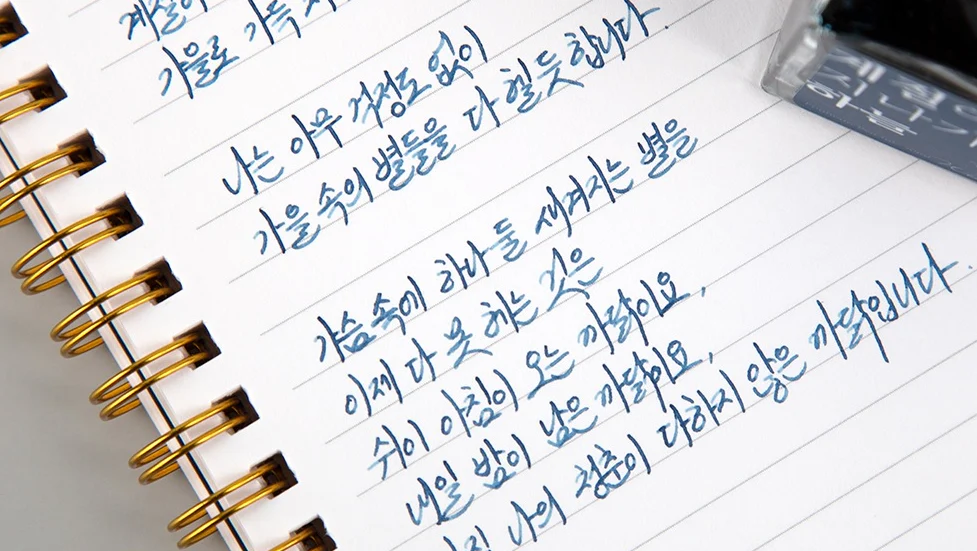 계절이
가을로 가득
나는 아무 걱정도 없이
가을 속의 별들을 다 헬듯합니다.
가슴속에 하나 둘 새겨지는 별을
이제 다 못 헤는 것은
쉬이 아침이 오는 까닭이요,
내일 밤이 남은 까닭이요,
나의 청춘이 다하지 않은 까닭입니다.
계절이
지나가
하늘